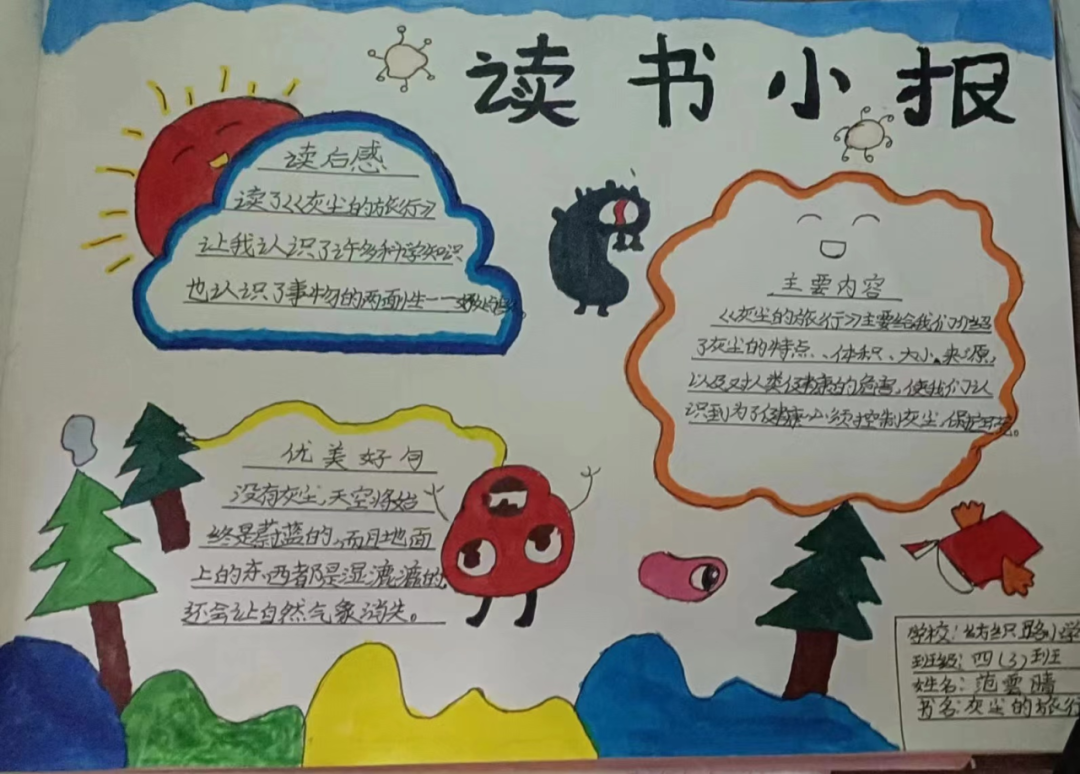 读书小报
读后感
读了《灰尘的旅行》
让我认识了许多科学知识
也认识了事物的两面性——好
主要内容
《灰尘的旅行》主要给我们介绍
了灰尘的特点、体积、大小、来源,
以及对人类健康的危害,使我们认
识到为了健康必须控制灰尘,保护环境。
优美好句
没有灰尘,天空将始
终是蔚蓝的,而且地面
上的东西都是湿漉漉的
还会让自然气象消失。
学校:纺织路小学
班级:四(3)班
姓名:范雲晴
书名:灰尘的旅行